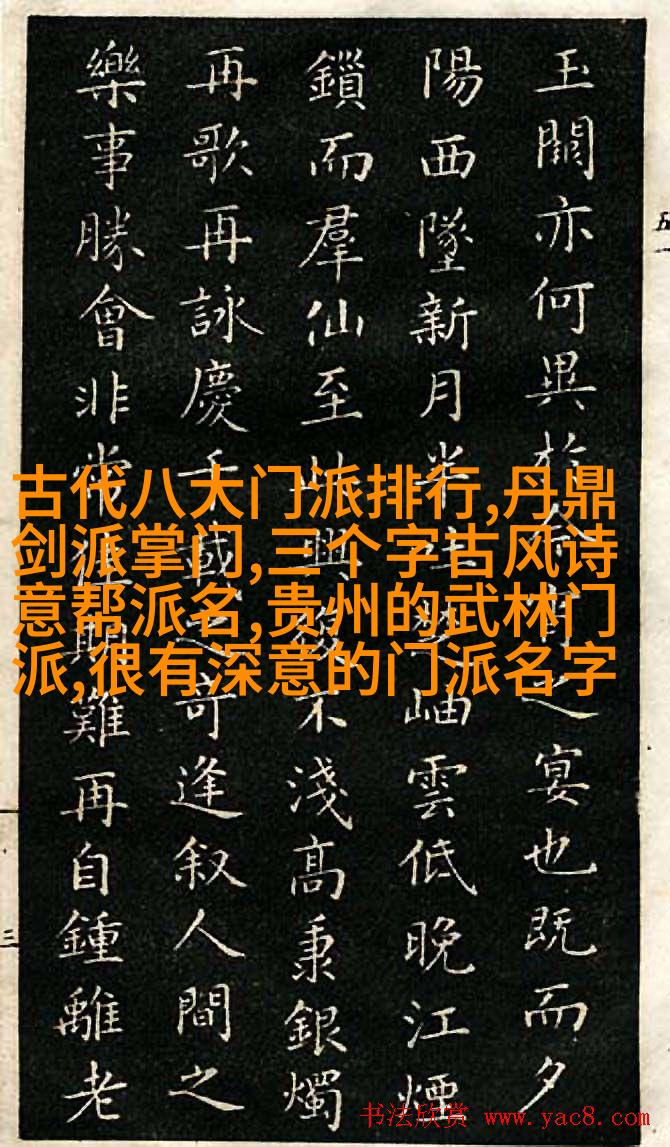 玉闕亦何異於之宴也既而夕
陽西墜新月半楚岫雲低晚江煙
鎖而羣仙至此興不淺高秉銀燭
再歌再詠慶千載之奇逢叙人間之
樂事勝會非常期難再自鍾離老
古代八大门派排行,丹鼎
剑派掌门,三个字古风诗
意帮派名,贵州的武林门
派,很有深意的门派名字
五
三
书法欣赏 www.yac8.com